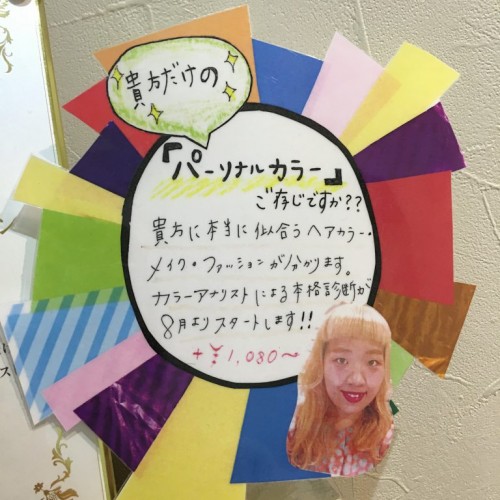 貴方だけの
『パーソナルカラー』
ご存じですか??
貴方に本当に似合うヘアカラー・
メイク・ファッションが分かります。
カラーアナリストによる本格診断が
8月よりスタートします!!
+¥1,080〜